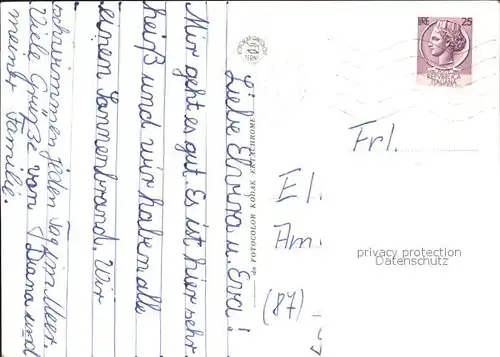 Liebe Elvira u. Eva!
Mir geht es gut. Es ist hier sehr
heiß und wir haben alle
einen Sonnenbrand. Wir
schwimmen jeden Tag im Meer.
Viele Grüße von Diana und
meiner Familie.
da FOTOCOLOR KODAK EKTACHROME
LIRE 25
REPUBBLICA
ITALIANA
Frl.
El
Am
(87)
privacy protection
Datenschutz